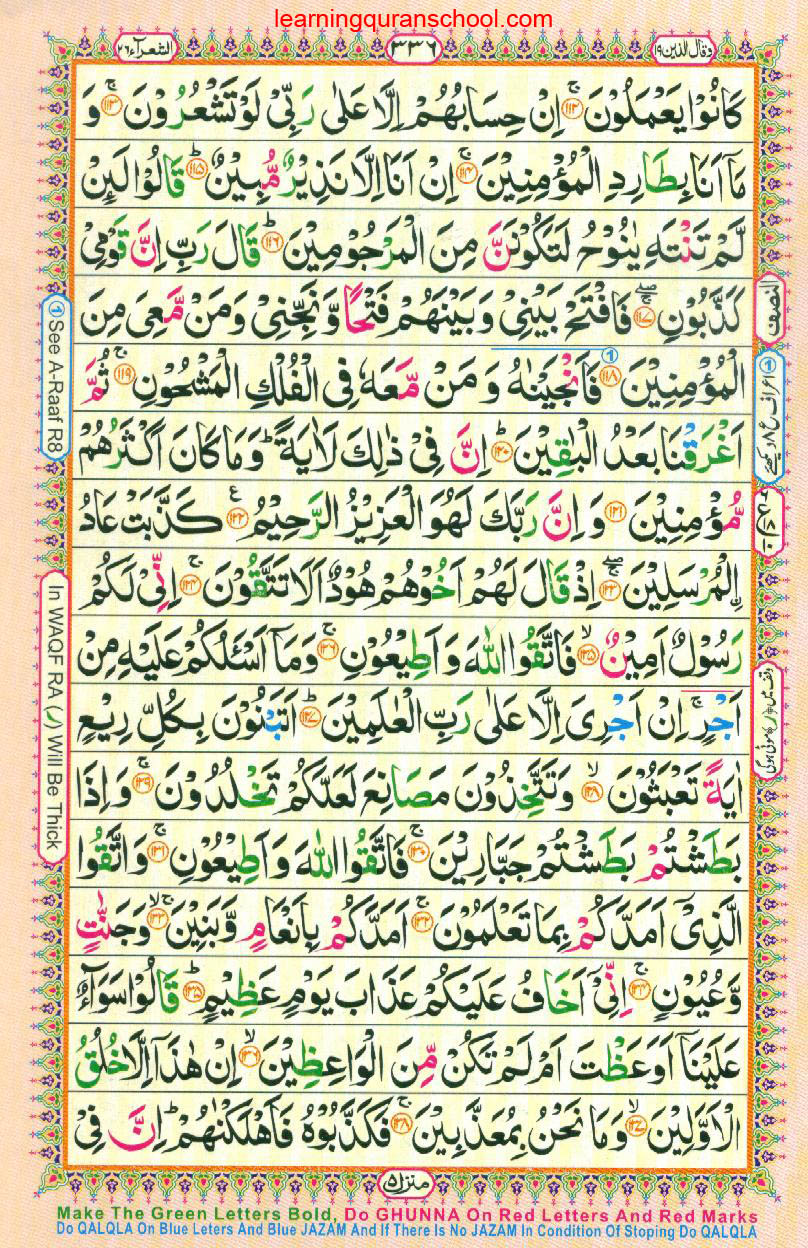 learningquranschool.com
وقال الذین ١٩
٣٣٦
الشعرآء ٢٦
كَانُوْا يَعْمَلُوْنَ ﴿١١٢﴾ۚ اِنْ حِسَابُهُمْ اِلَّا عَلٰى رَبِّيْ لَوْ تَشْعُرُوْنَ ﴿١١٣﴾ۚ وَ
مَاۤ اَنَا بِطَارِدِ الْمُؤْمِنِيْنَ ﴿١١٤﴾ۚ اِنْ اَنَا اِلَّا نَذِيْرٌ مُّبِيْنٌ ﴿١١٥﴾ؕ قَالُوْا لَىِٕنْ
لَّمْ تَنْتَهِ يٰنُوْحُ لَتَكُوْنَنَّ مِنَ الْمَرْجُوْمِيْنَ ﴿١١٦﴾ؕ قَالَ رَبِّ اِنَّ قَوْمِيْ
كَذَّبُوْنِ ﴿١١٧﴾ۖۚ فَافْتَحْ بَيْنِيْ وَ بَيْنَهُمْ فَتْحًا وَّ نَجِّنِيْ وَ مَنْ مَّعِيَ مِنَ
الْمُؤْمِنِيْنَ ﴿١١٨﴾ فَاَنْجَيْنٰهُ وَ مَنْ مَّعَهٗ فِي الْفُلْكِ الْمَشْحُوْنِ ﴿١١٩﴾ۚ ثُمَّ
اَغْرَقْنَا بَعْدُ الْبٰقِيْنَ ﴿١٢٠﴾ؕ اِنَّ فِيْ ذٰلِكَ لَاٰيَةً ؕ وَ مَا كَانَ اَكْثَرُهُمْ
مُّؤْمِنِيْنَ ﴿١٢١﴾ وَ اِنَّ رَبَّكَ لَهُوَ الْعَزِيْزُ الرَّحِيْمُ ﴿١٢٢﴾ع كَذَّبَتْ عَادُ
اِۨلْمُرْسَلِيْنَ ﴿١٢٣﴾ۖۚ اِذْ قَالَ لَهُمْ اَخُوْهُمْ هُوْدٌ اَلَا تَتَّقُوْنَ ﴿١٢٤﴾ۚ اِنِّيْ لَكُمْ
رَسُوْلٌ اَمِيْنٌ ﴿١٢٥﴾ۙ فَاتَّقُوا اللّٰهَ وَ اَطِيْعُوْنِ ﴿١٢٦﴾ۚ وَ مَاۤ اَسْـَٔلُكُمْ عَلَيْهِ مِنْ
اَجْرٍ ۚ اِنْ اَجْرِيَ اِلَّا عَلٰى رَبِّ الْعٰلَمِيْنَ ﴿١٢٧﴾ؕ اَتَبْنُوْنَ بِكُلِّ رِيْعٍ
اٰيَةً تَعْبَثُوْنَ ﴿١٢٨﴾ۙ وَ تَتَّخِذُوْنَ مَصَانِعَ لَعَلَّكُمْ تَخْلُدُوْنَ ﴿١٢٩﴾ۚ وَ اِذَا
بَطَشْتُمْ بَطَشْتُمْ جَبَّارِيْنَ ﴿١٣٠﴾ۚ فَاتَّقُوا اللّٰهَ وَ اَطِيْعُوْنِ ﴿١٣١﴾ۚ وَ اتَّقُوا
الَّذِيْۤ اَمَدَّكُمْ بِمَا تَعْلَمُوْنَ ﴿١٣٢﴾ۚ اَمَدَّكُمْ بِاَنْعَامٍ وَّ بَنِيْنَ ﴿١٣٣﴾ۚۙ وَ جَنّٰتٍ
وَّ عُيُوْنٍ ﴿١٣٤﴾ۚ اِنِّيْۤ اَخَافُ عَلَيْكُمْ عَذَابَ يَوْمٍ عَظِيْمٍ ﴿١٣٥﴾ؕ قَالُوْا سَوَآءٌ
عَلَيْنَاۤ اَوَعَظْتَ اَمْ لَمْ تَكُنْ مِّنَ الْوَاعِظِيْنَ ﴿١٣٦﴾ۙ اِنْ هٰذَاۤ اِلَّا خُلُقُ
الْاَوَّلِيْنَ ﴿١٣٧﴾ۙ وَ مَا نَحْنُ بِمُعَذَّبِيْنَ ﴿١٣٨﴾ۚ فَكَذَّبُوْهُ فَاَهْلَكْنٰهُمْ ؕ اِنَّ فِيْ
النصف
① اعراف ع ٨ دیکھئے
① See A-Raaf R8
In WAQF RA (ر) Will Be Thick
منزل ٥
Make The Green Letters Bold, Do GHUNNA On Red Letters And Red Marks
Do QALQLA On Blue Leters And Blue JAZAM And If There Is No JAZAM In Condition Of Stoping Do QALQLA